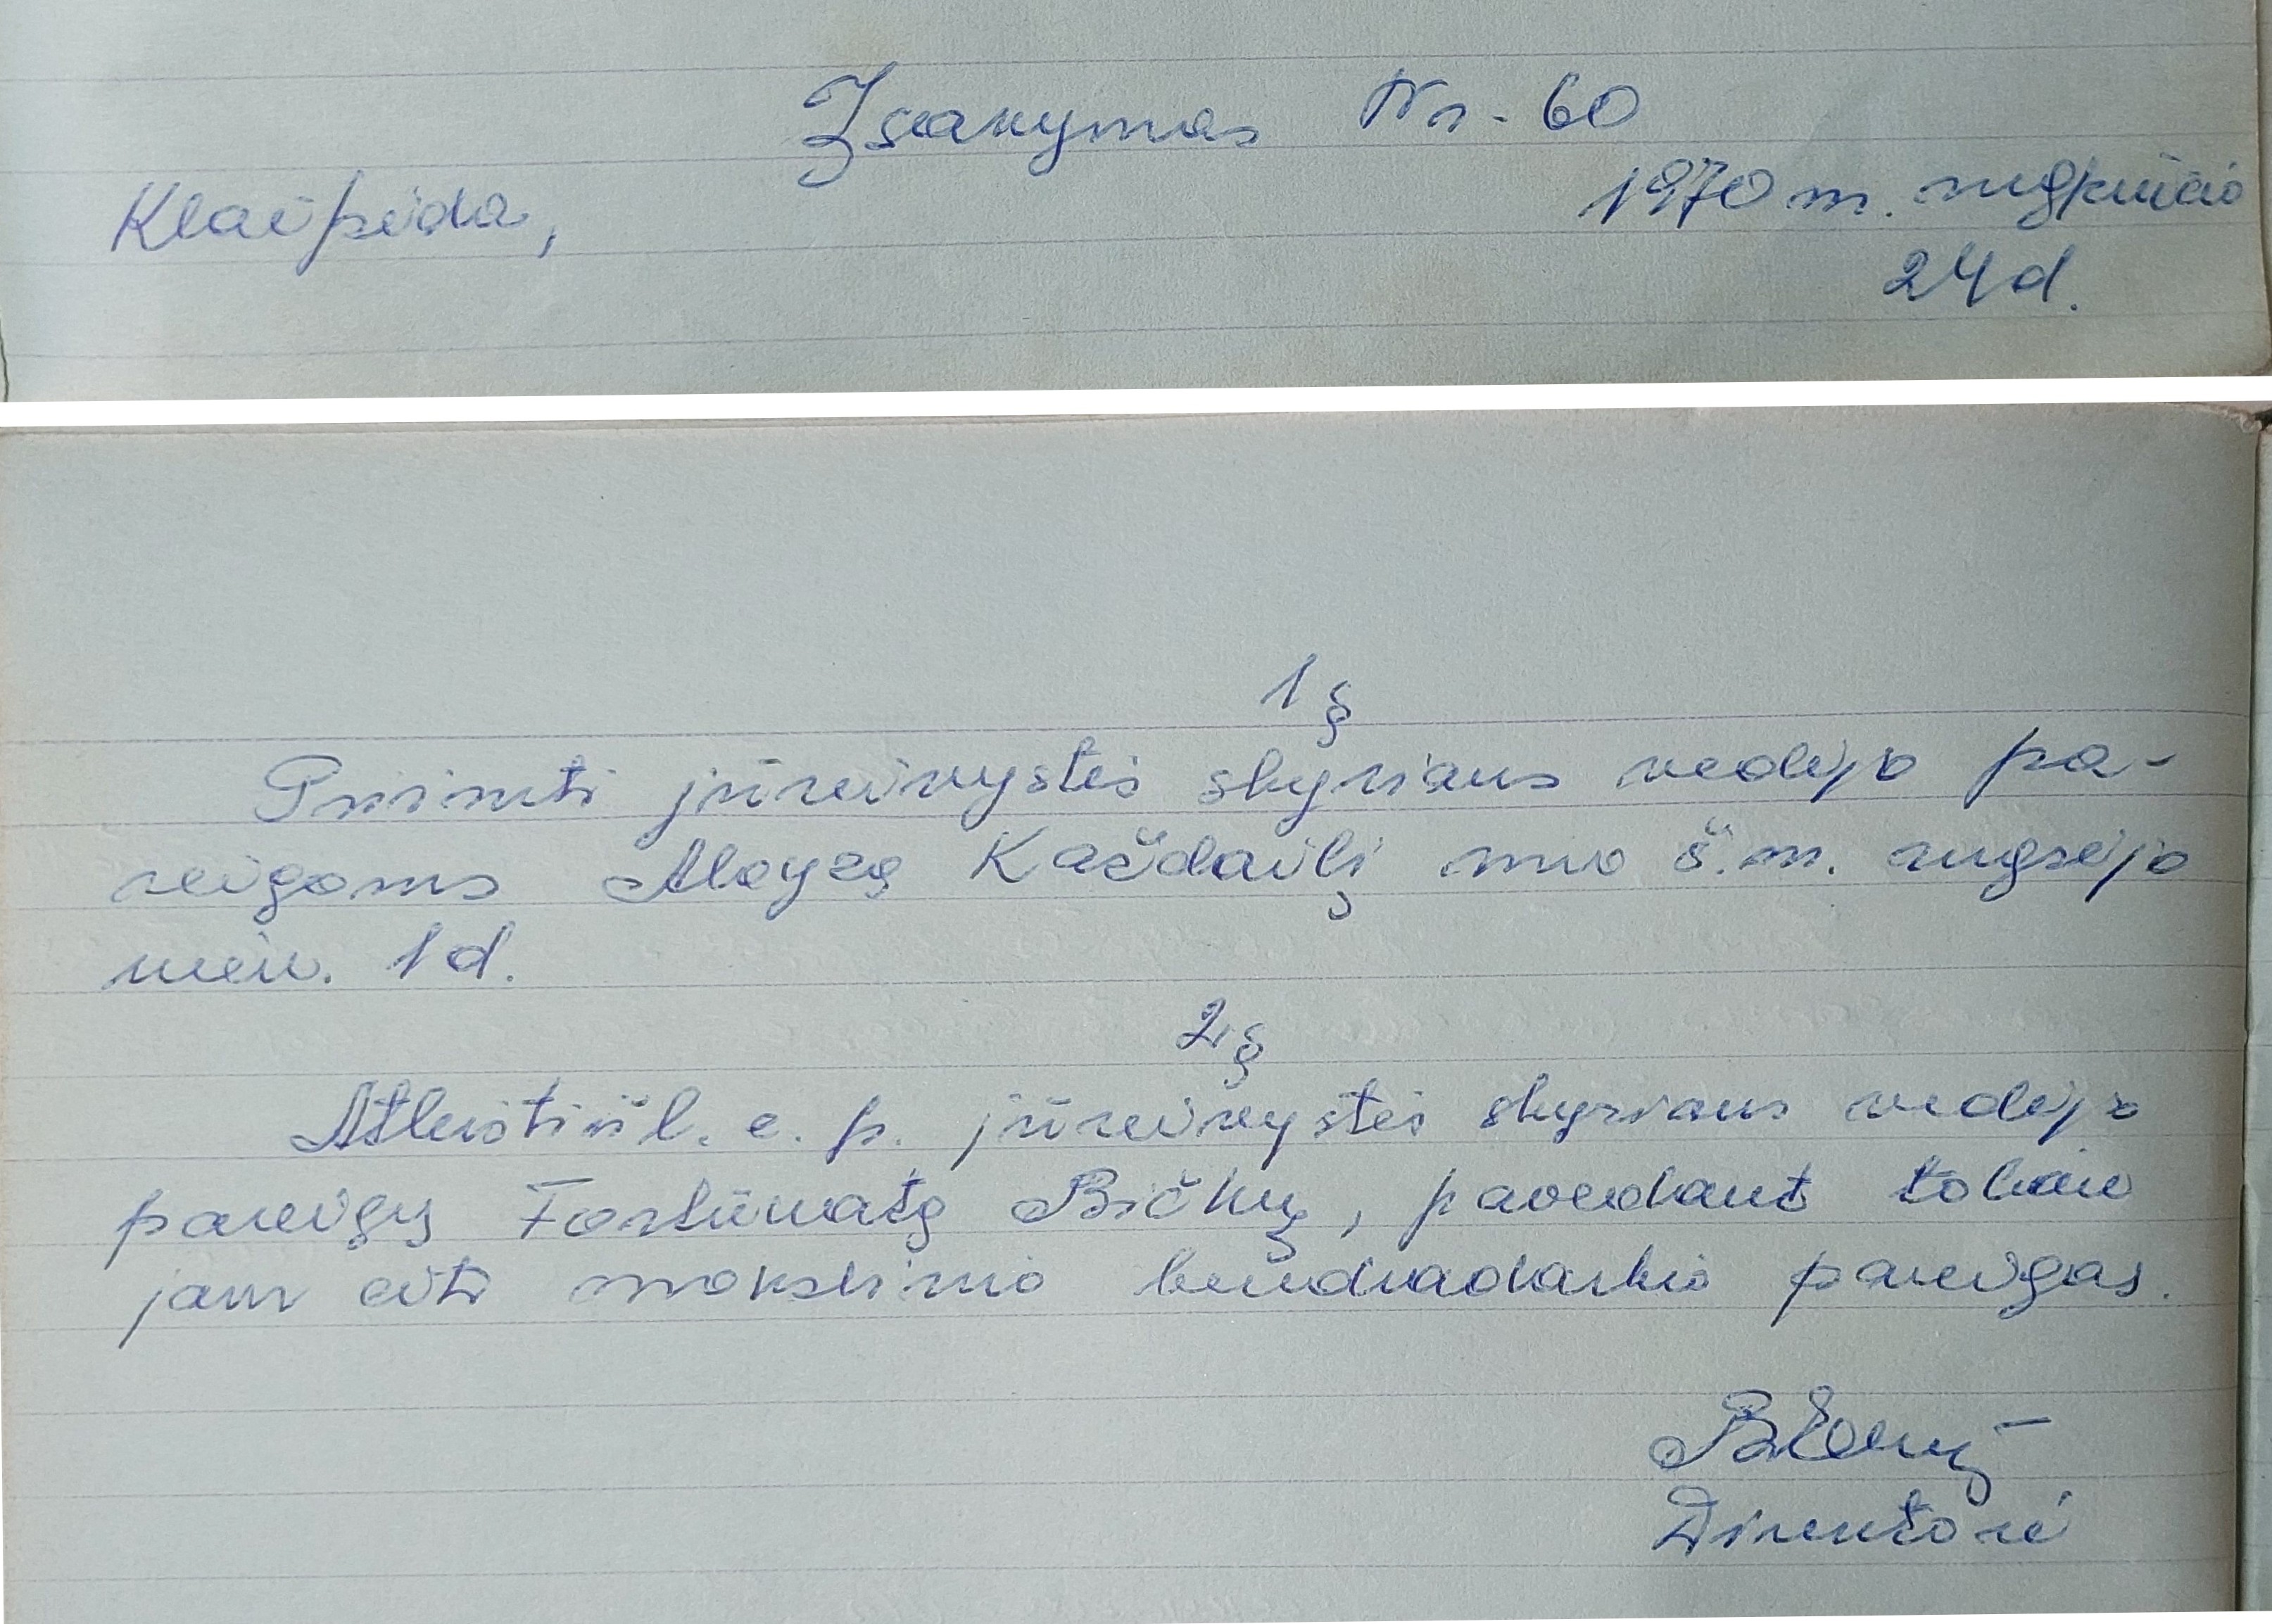 Įsakymas Nr. 60
Klaipėda,
1970 m. rugpiučio
24 d.
1 §
Priimti jūreivystės skyriaus vedėjo pa-
reigoms Aloyzą Každailį nuo š.m. rugsėjo
mėn. 1 d.
2 §
Atleisti iš l. e. p. jūreivystės skyriaus vedėjo
pareigų Fortūnatą Bičkų, pavedant toliau
jam eiti mokslinio bendradarbio pareigas.
Direktorė